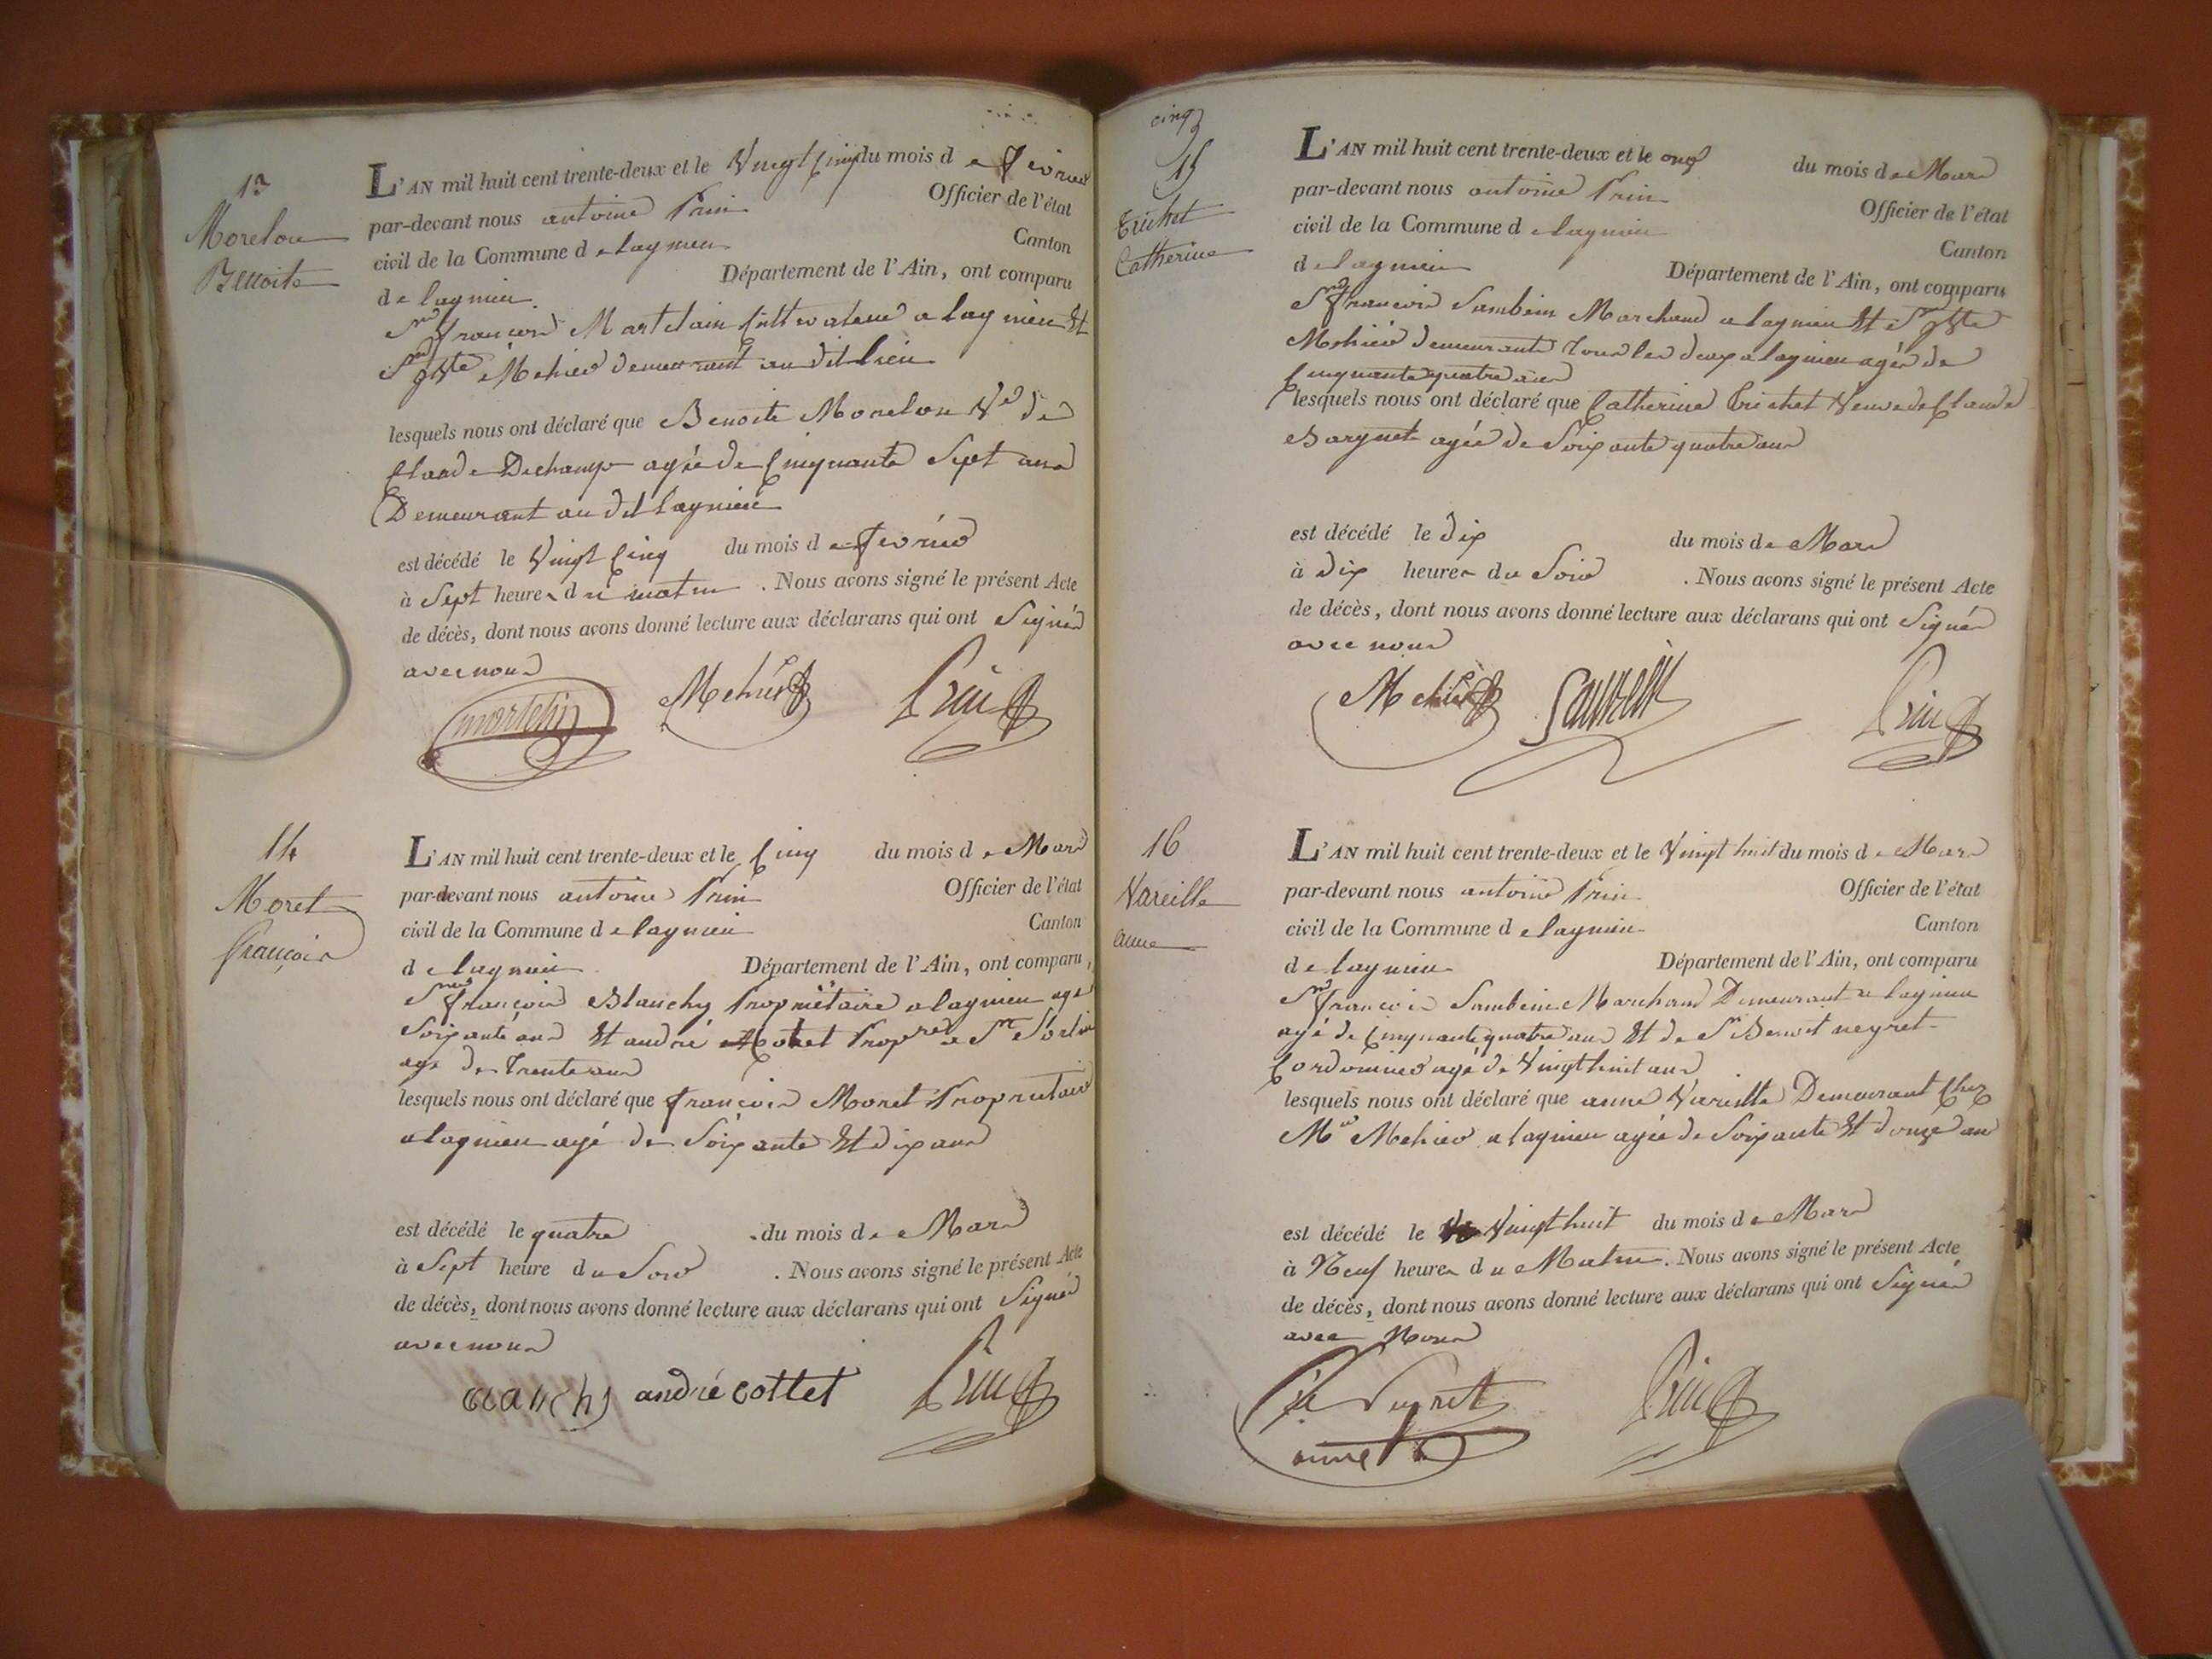 13
Morelon
Benoite
L'AN mil huit cent trente-deux et le Vingt Cinq du mois de fevrier
par-devant nous antoine Prin Officier de l'état
civil de la Commune de lagnieu Canton
de lagnieu Département de l'Ain, ont comparu
Sr françois Martelain Cultivateur a lagnieu Et
Sr Jbte Mehier demeurant au dit lieu
lesquels nous ont déclaré que Benoite Morelon Ve de
Claude Dechamp agée de Cinquante Sept ans
Demeurant au dit lagnieu
est décédé le Vingt Cinq du mois de fevrier
à Sept heures du matin . Nous avons signé le présent Acte
de décès, dont nous avons donné lecture aux déclarans qui ont Signés
avec nous
martelin Mehier Prin
14
Moret
françois
L'AN mil huit cent trente-deux et le Cinq du mois de Mars
par-devant nous antoine Prin Officier de l'état
civil de la Commune de lagnieu Canton
de lagnieu Département de l'Ain, ont comparu,
Sr françois Blanchy Propriétaire a lagnieu agé
Soixante ans Et andré Cotet Propre a St Sorlin
agé de Trente ans
lesquels nous ont déclaré que françois Moret Proprietaire
a lagnieu agé de Soixante Et dix ans
est décédé le quatre du mois de Mars
à Sept heure du Soir . Nous avons signé le présent Acte
de décès, dont nous avons donné lecture aux déclarans qui ont Signés
avec nous
blanchy andré cottet Prin
cinq
15
Trichet
Catherine
L'AN mil huit cent trente-deux et le onze du mois de Mars
par-devant nous antoine Prin Officier de l'état
civil de la Commune de lagnieu Canton
de lagnieu Département de l'Ain, ont comparu
Sr françois Sambein Marchand a lagnieu Et Sr Jbte
Mehier demeurants Tous les deux a lagnieu agés de
Cinquante quatre ans
lesquels nous ont déclaré que Catherine Trichet Veuve de Claude
Barquet agée de Soixante quatre ans
est décédé le dix du mois de Mars
à dix heures du Soir . Nous avons signé le présent Acte
de décès, dont nous avons donné lecture aux déclarans qui ont Signés
avec nous
Mehier Sambein Prin
16
Vareille
anne
L'AN mil huit cent trente-deux et le Vingt huit du mois de Mars
par-devant nous antoine Prin Officier de l'état
civil de la Commune de lagnieu Canton
de lagnieu Département de l'Ain, ont comparu
Sr françois Sambein Marchand Demeurant a lagnieu
agé de Cinquante quatre ans Et de Sr Benoit neyret
Cordonnier agé de Vingt huit ans
lesquels nous ont déclaré que anne Vareille Demeurant Chez
Mr Mehier a lagnieu agée de Soixante Et douze ans
est décédé le Vingt huit du mois de Mars
à Neuf heures du Matin. Nous avons signé le présent Acte
de décès, dont nous avons donné lecture aux déclarans qui ont Signés
avec Nous
Neyret Prin